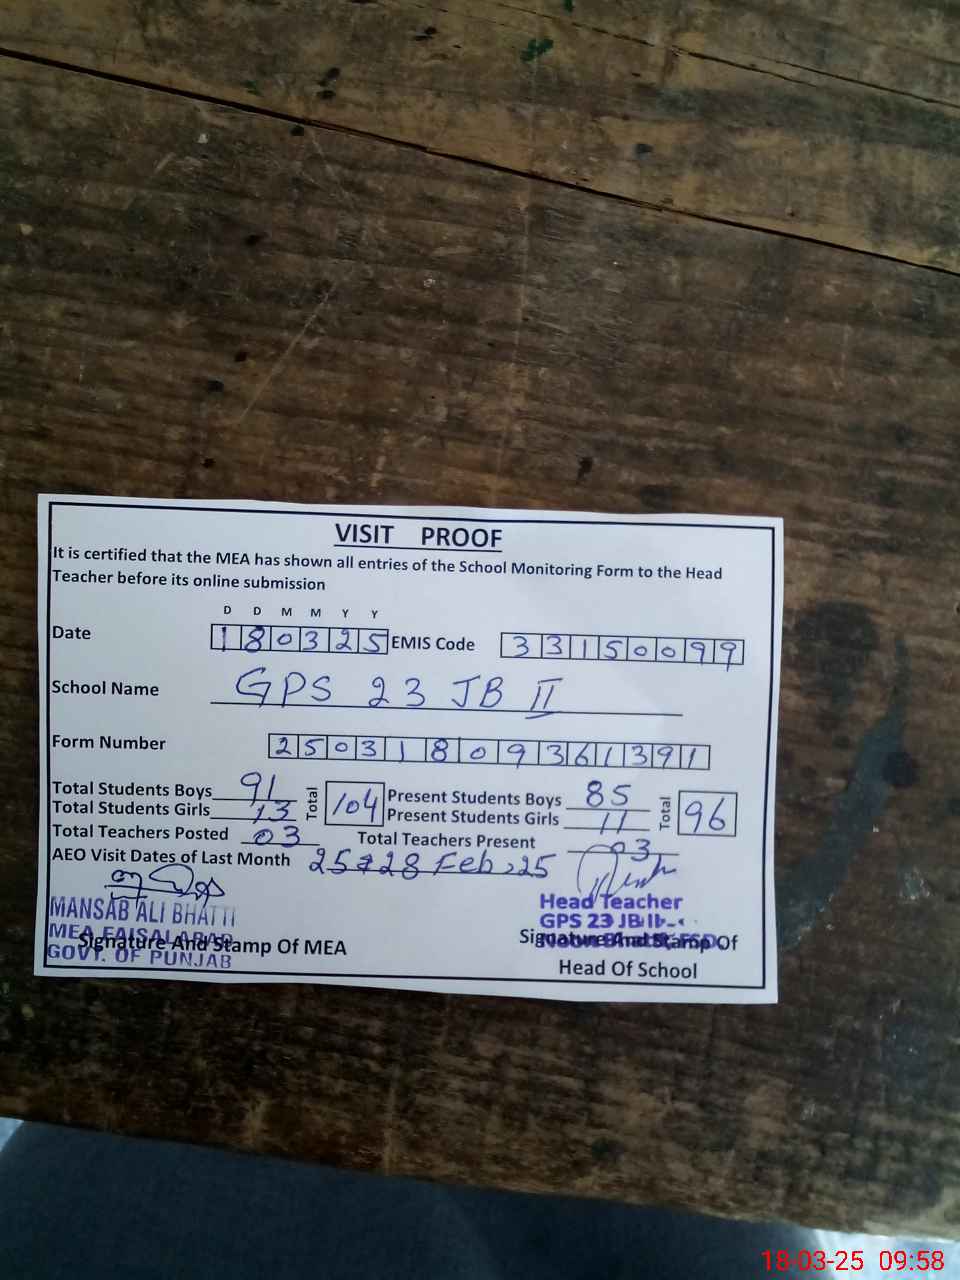 VISIT PROOF
It is certified that the MEA has shown all entries of the School Monitoring Form to the Head
Teacher before its online submission
D D M M Y Y
Date 180325 EMIS Code 33150099
School Name GPS 23 JB II
Form Number 25031809361391
Total Students Boys 91 Total 104 Present Students Boys 85 Total 96
Total Students Girls 13 Present Students Girls 11
Total Teachers Posted 03 Total Teachers Present 03
AEO Visit Dates of Last Month 25 28 Feb, 25
MANSAB ALI BHATTI
MEA FAISALABAD
GOVT. OF PUNJAB
Signature And Stamp Of MEA
Head Teacher
GPS 23 JB II
Signature And Stamp Of
Head Of School
18-03-25 09:58